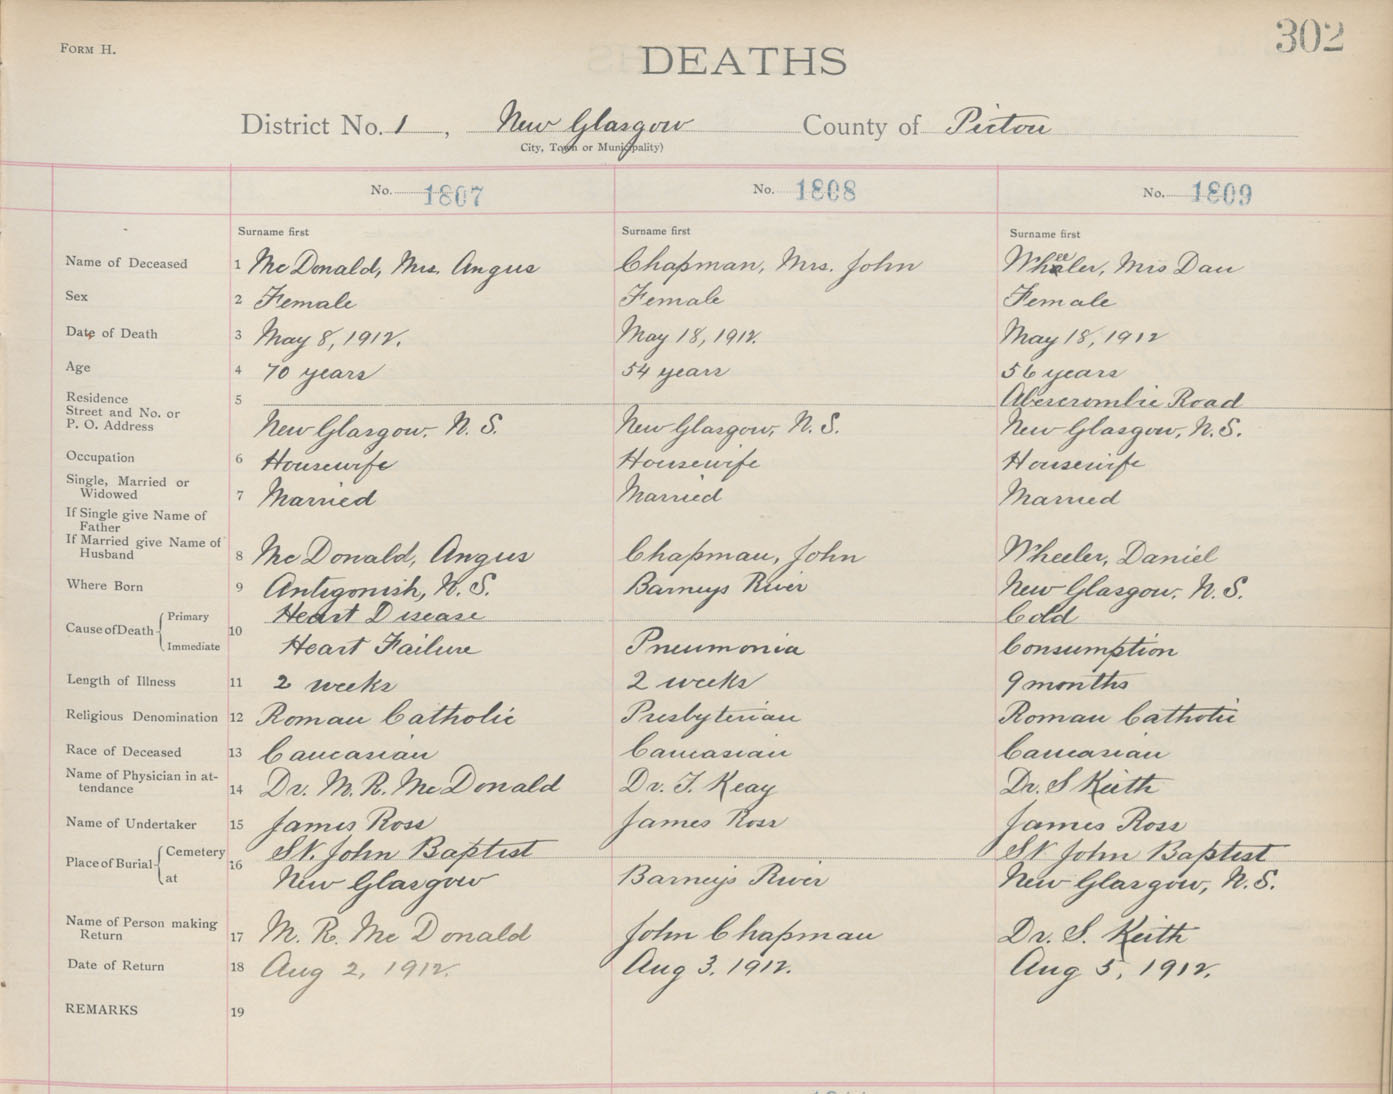 302
FORM H.
DEATHS
District No. 1, New Glasgow County of Pictou
City, Town or Municipality)
No. 1807 No. 1808 No. 1809
Surname first Surname first Surname first
Name of Deceased 1 McDonald, Mrs. Angus Chapman, Mrs. John Wheeler, Mrs Dan
Sex 2 Female Female Female
Date of Death 3 May 8, 1912. May 18, 1912. May 18, 1912
Age 4 70 years 54 years 56 years
Residence 5 Abercrombie Road
Street and No. or
P. O. Address New Glasgow, N. S. New Glasgow, N. S. New Glasgow, N.S.
Occupation 6 Housewife Housewife Housewife
Single, Married or
Widowed 7 Married Married Married
If Single give Name of
Father
If Married give Name of
Husband 8 McDonald, Angus Chapman, John Wheeler, Daniel
Where Born 9 Antigonish, N. S. Barneys River New Glasgow, N. S.
Cause of Death Primary 10 Heart Disease Cold
Immediate Heart Failure Pneumonia Consumption
Length of Illness 11 2 weeks 2 weeks 9 months
Religious Denomination 12 Roman Catholic Presbyterian Roman Catholic
Race of Deceased 13 Caucasian Caucasian Caucasian
Name of Physician in at-
tendance 14 Dr. M. R. McDonald Dr. F. Keay Dr. S Keith
Name of Undertaker 15 James Ross James Ross James Ross
Place of Burial Cemetery 16 St. John Baptist St John Baptist
at New Glasgow Barneys River New Glasgow, N. S.
Name of Person making
Return 17 M. R. McDonald John Chapman Dr. S. Keith
Date of Return 18 Aug 2, 1912. Aug 3. 1912. Aug 5, 1912.
REMARKS 19